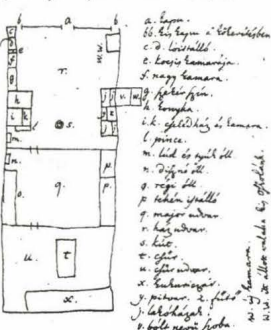 b a b
c
d
e
f
g
h
i k
l
m
n
o
p
p
q.
r.
s.
j v. w
u. t
x.
a. kapu.
bb. kis kapu a kőkerítésben
c. d. lóistálló
e. kocsis kamarája
f. nagy kamara.
g. szekér szín.
h. konyha.
i. k. cselédház és kamara.
l. pince.
m. lúd és tyúk óll.
n. disznó óll.
o. régi óll
p. tehén istálló
q. major udvar
r. ház udvar.
s. kút.
t. csűr.
u. csűr udvar
x. kukoriczás
y. pitvar. z. fűtő
j. lakóházak.
v. bolt nevű szoba
w. új kamara.